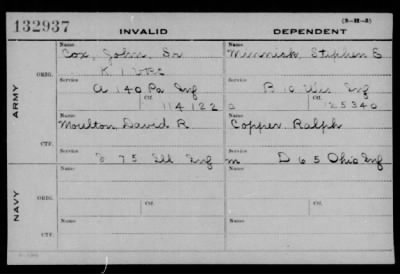 132937
INVALID
DEPENDENT
(3-H-5)
ARMY
ORIG.
Name
Cox, John, Sr
K 1
Service
A 140 Pa Inf
Ctf.
114122
Name
Minnick, Stephen
Service
B 10 Inf
Ctf.
25340
CTF.
Name
Moulton, David R
Service
E 75 Ill Inf
Ctf.
Name
Copper, Ralph
Service
D 65 Ohio Inf
Ctf.
NAVY
ORIG.
Name
Service
Ctf.
Name
Service
Ctf.
CTF.
Name
Name